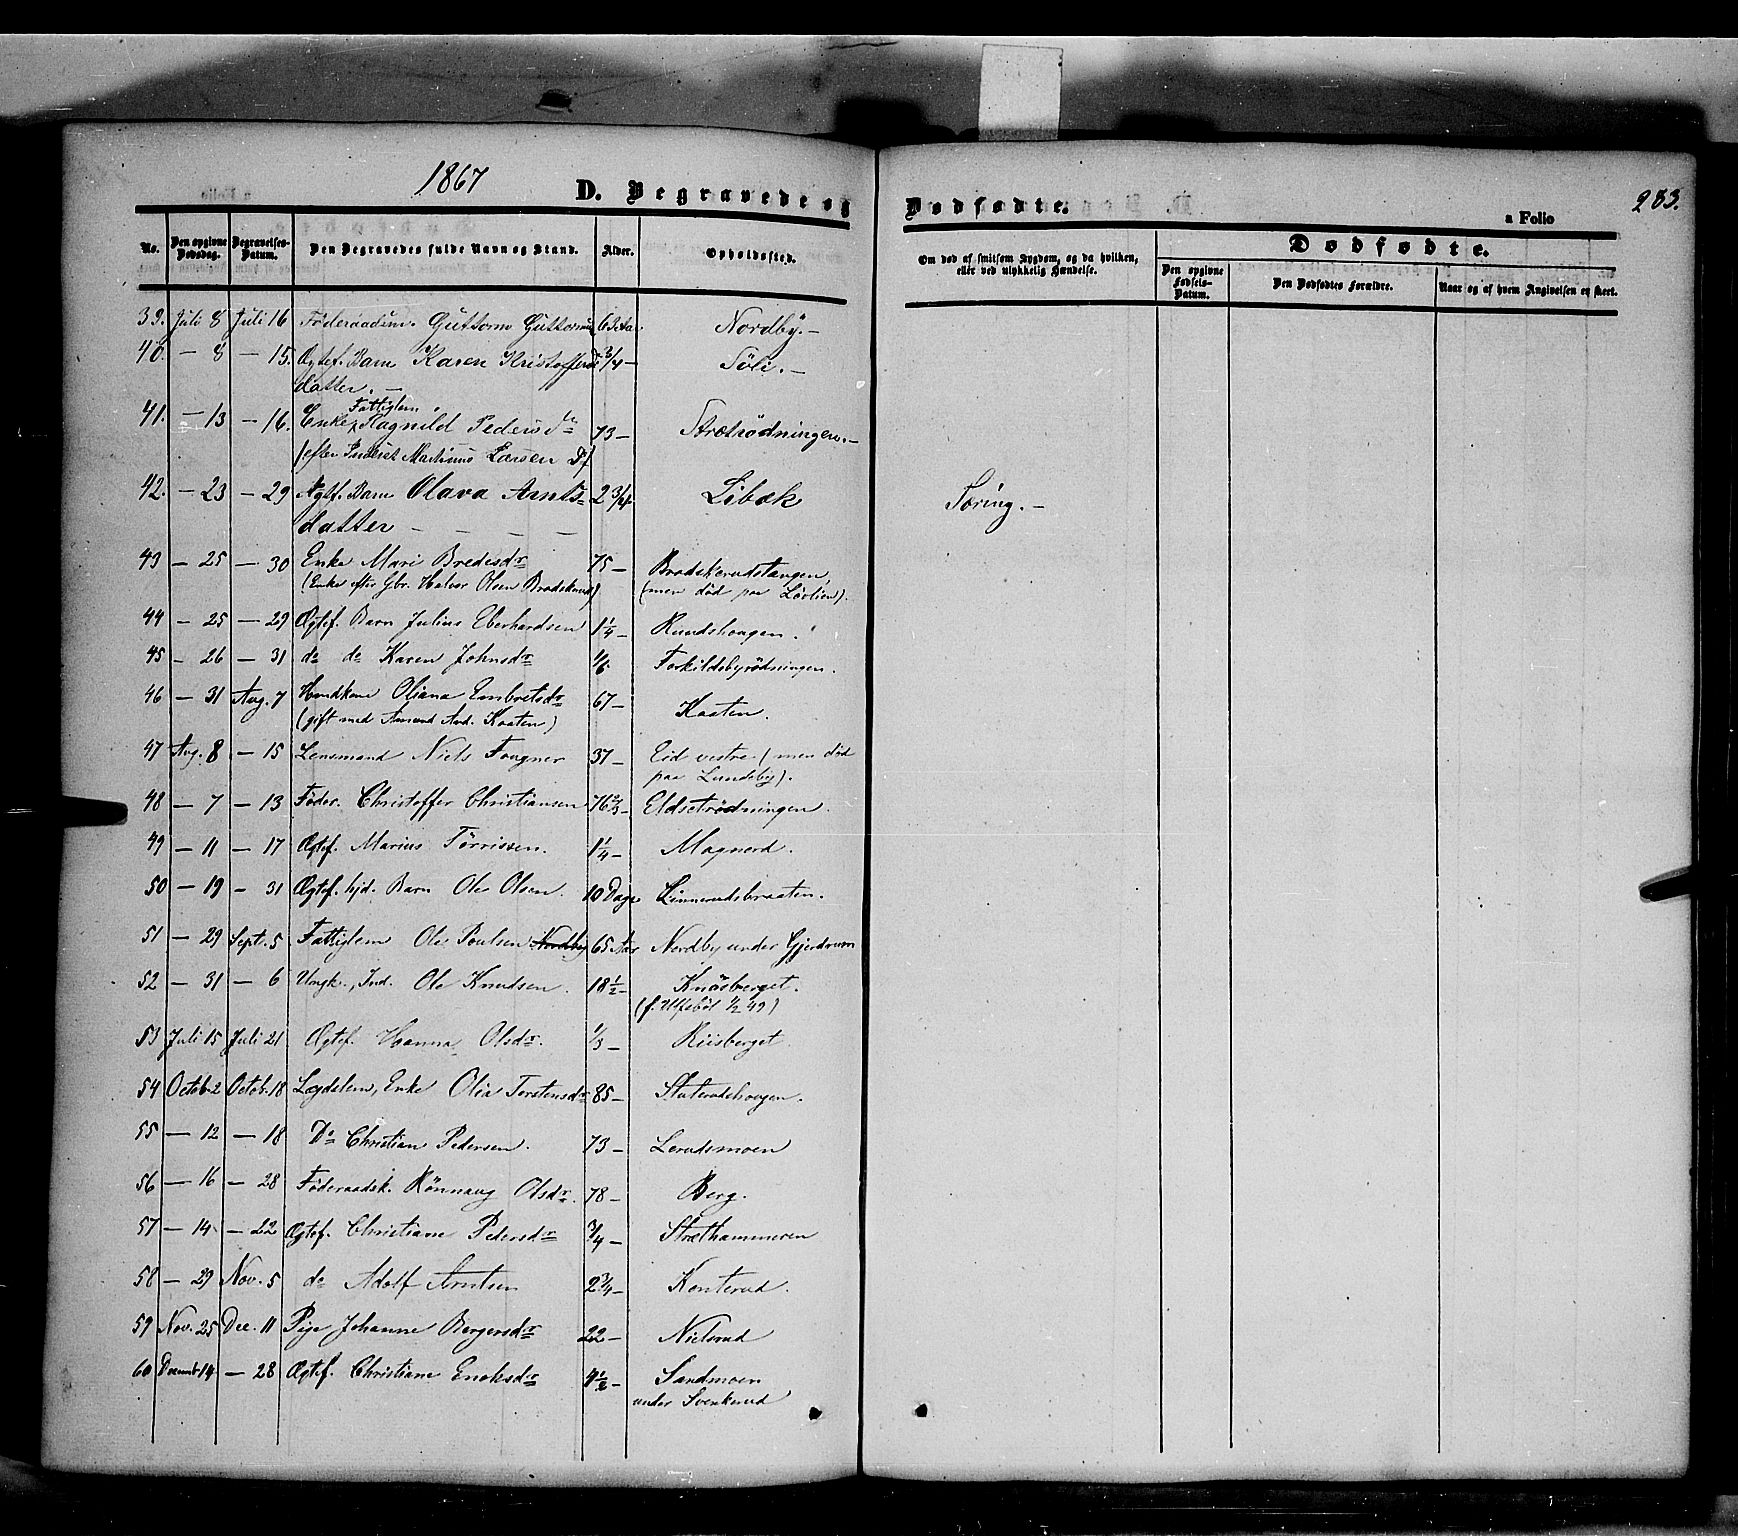 1867
D. Begravede og
Dødfødte.
a Folio
283.
No.
Den opgivne Dødsdag.
Begravelses-Datum.
Den Begravedes fulde Navn og Stand.
Alder.
Opholdssted.
Om død af smitsom Sygdom, og da hvilken, eller ved ulykkelig Hændelse.
Dødfødte.
Den opgivne Fødsels-Datum.
Den Dødfødtes Forældre.
Naar og af hvem Angivelsen er skeet.
39. Juli 8 Juli 16 Föderaadsm. Guttorm 63 Aar. Nordby. -
40. - 8 - 15. Ægtef. Barn Karen Kristoffers 3/4 - Töli. -
datter. -
Fattiglem
41. - 13 - 16. Enke Ragnild Peders dr 73 - Strætrödningen. -
(efter Inderst Martinus Larsen
42. - 23 - 29 Ægtf. Barn Olava Arnts= 2 3/4 Libæk Tæring. -
datter - - - -
43 - 25 - 30 Enke Mari Bredesdr 75 - Brodskerudstangen,
(Enke efter Gbr. Halvor Olsen Brodskerud) (men död paa Lövlien).
44 - 25 - 29 Ægtef. Barn Julius Eberhardsen 1 1/4 - Rundshougen.
45 - 26 - 31 do do Karen Johnsdr 1/6. Torkildsbyrödningen.
46 - 31 Aug. 7 Huudkone Oliana Embretsdr 67 - Kaaten.
(gift med Amund And. Kaaten)
47 Aug. 8 - 15 Lensmand Niels Fougner 37 - Eid vestre (men död
paa Lundeby).
48 - 7 - 13 Föder. Christoffer Christiansen 76 2/3 - Eldsetrödningen.
49 - 11 - 17 Ægtf. Marius Törrissen. 1 1/4 - Magnerd.
50 - 19 - 31 Ægtef. hjd. Barn Ole Olsen. 10 Dage Linnerudsbraaten.
51 - 29 Sept. 5 Fattiglem Ole Poulsen Nordby 65 Aar Nordby under Gjerdrum
52 - 31 - 6 Ungk., Ind. Ole Knudsen. 18 1/2 - Knäsberget.
(f. Ulfsböl 1/2 49)
53 Juli 15 Juli 21 Ægtef. Hanna Olsdr. 1/3 - Riisberget.
54 Octob. 2 Octob. 18 Lægdslem, Enke Olia Torstensdr 85 - Sluterudshougen.
55 - 12 - 18 Do Christian Pedersen. 73 - Lerudsmoen
56 - 16 - 28 Föderaadsk. Rönnaug Olsdr. 78 - Berg.
57 - 14 - 22 Ægtef. Christiane Pedersdr 3/4 - Stræthammeren
58 - 29 Nov. 5 do Adolf Arntsen 2 3/4 - Konterud.
59 Nov. 25 Dec. 11 Pige Johanne Bergersdr 22 - Nielsrud
60 Decemb. 14 - 28 Ægtef. Christiane Enoksdr 4 1/2 - Sandmoen
under Svenkerud